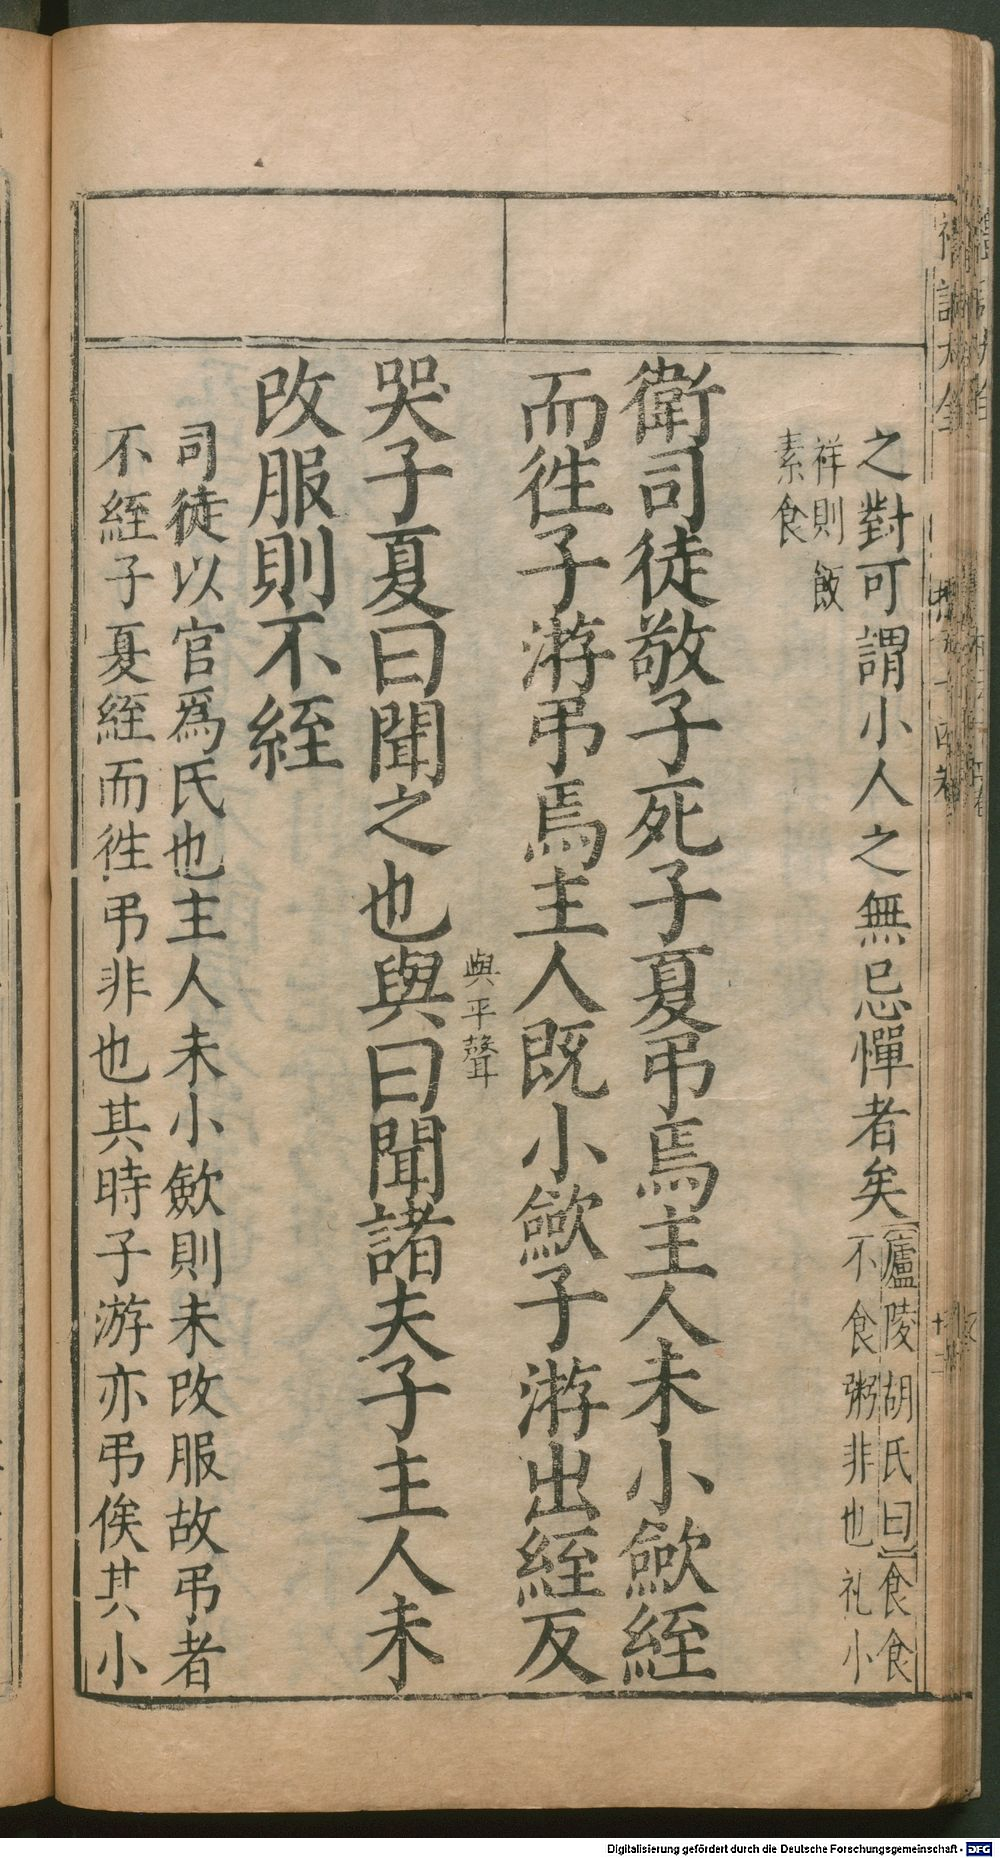 之對可謂小人之無忌憚者矣廬陵胡氏曰食食
不食粥非也礼小
祥則飯
素食
衛司徒敬子死子夏弔焉主人未小歛絰
而徃子游弔焉主人既小歛子游出絰反
哭子夏曰聞之也與曰聞諸夫子主人未
與平聲
改服則不絰
司徒以官爲氏也主人未小歛則未改服故弔者
不絰子夏絰而徃弔非也其時子游亦弔俟其小
Digitalisierung gefördert durch die Deutsche Forschungsgemeinschaft - DFG